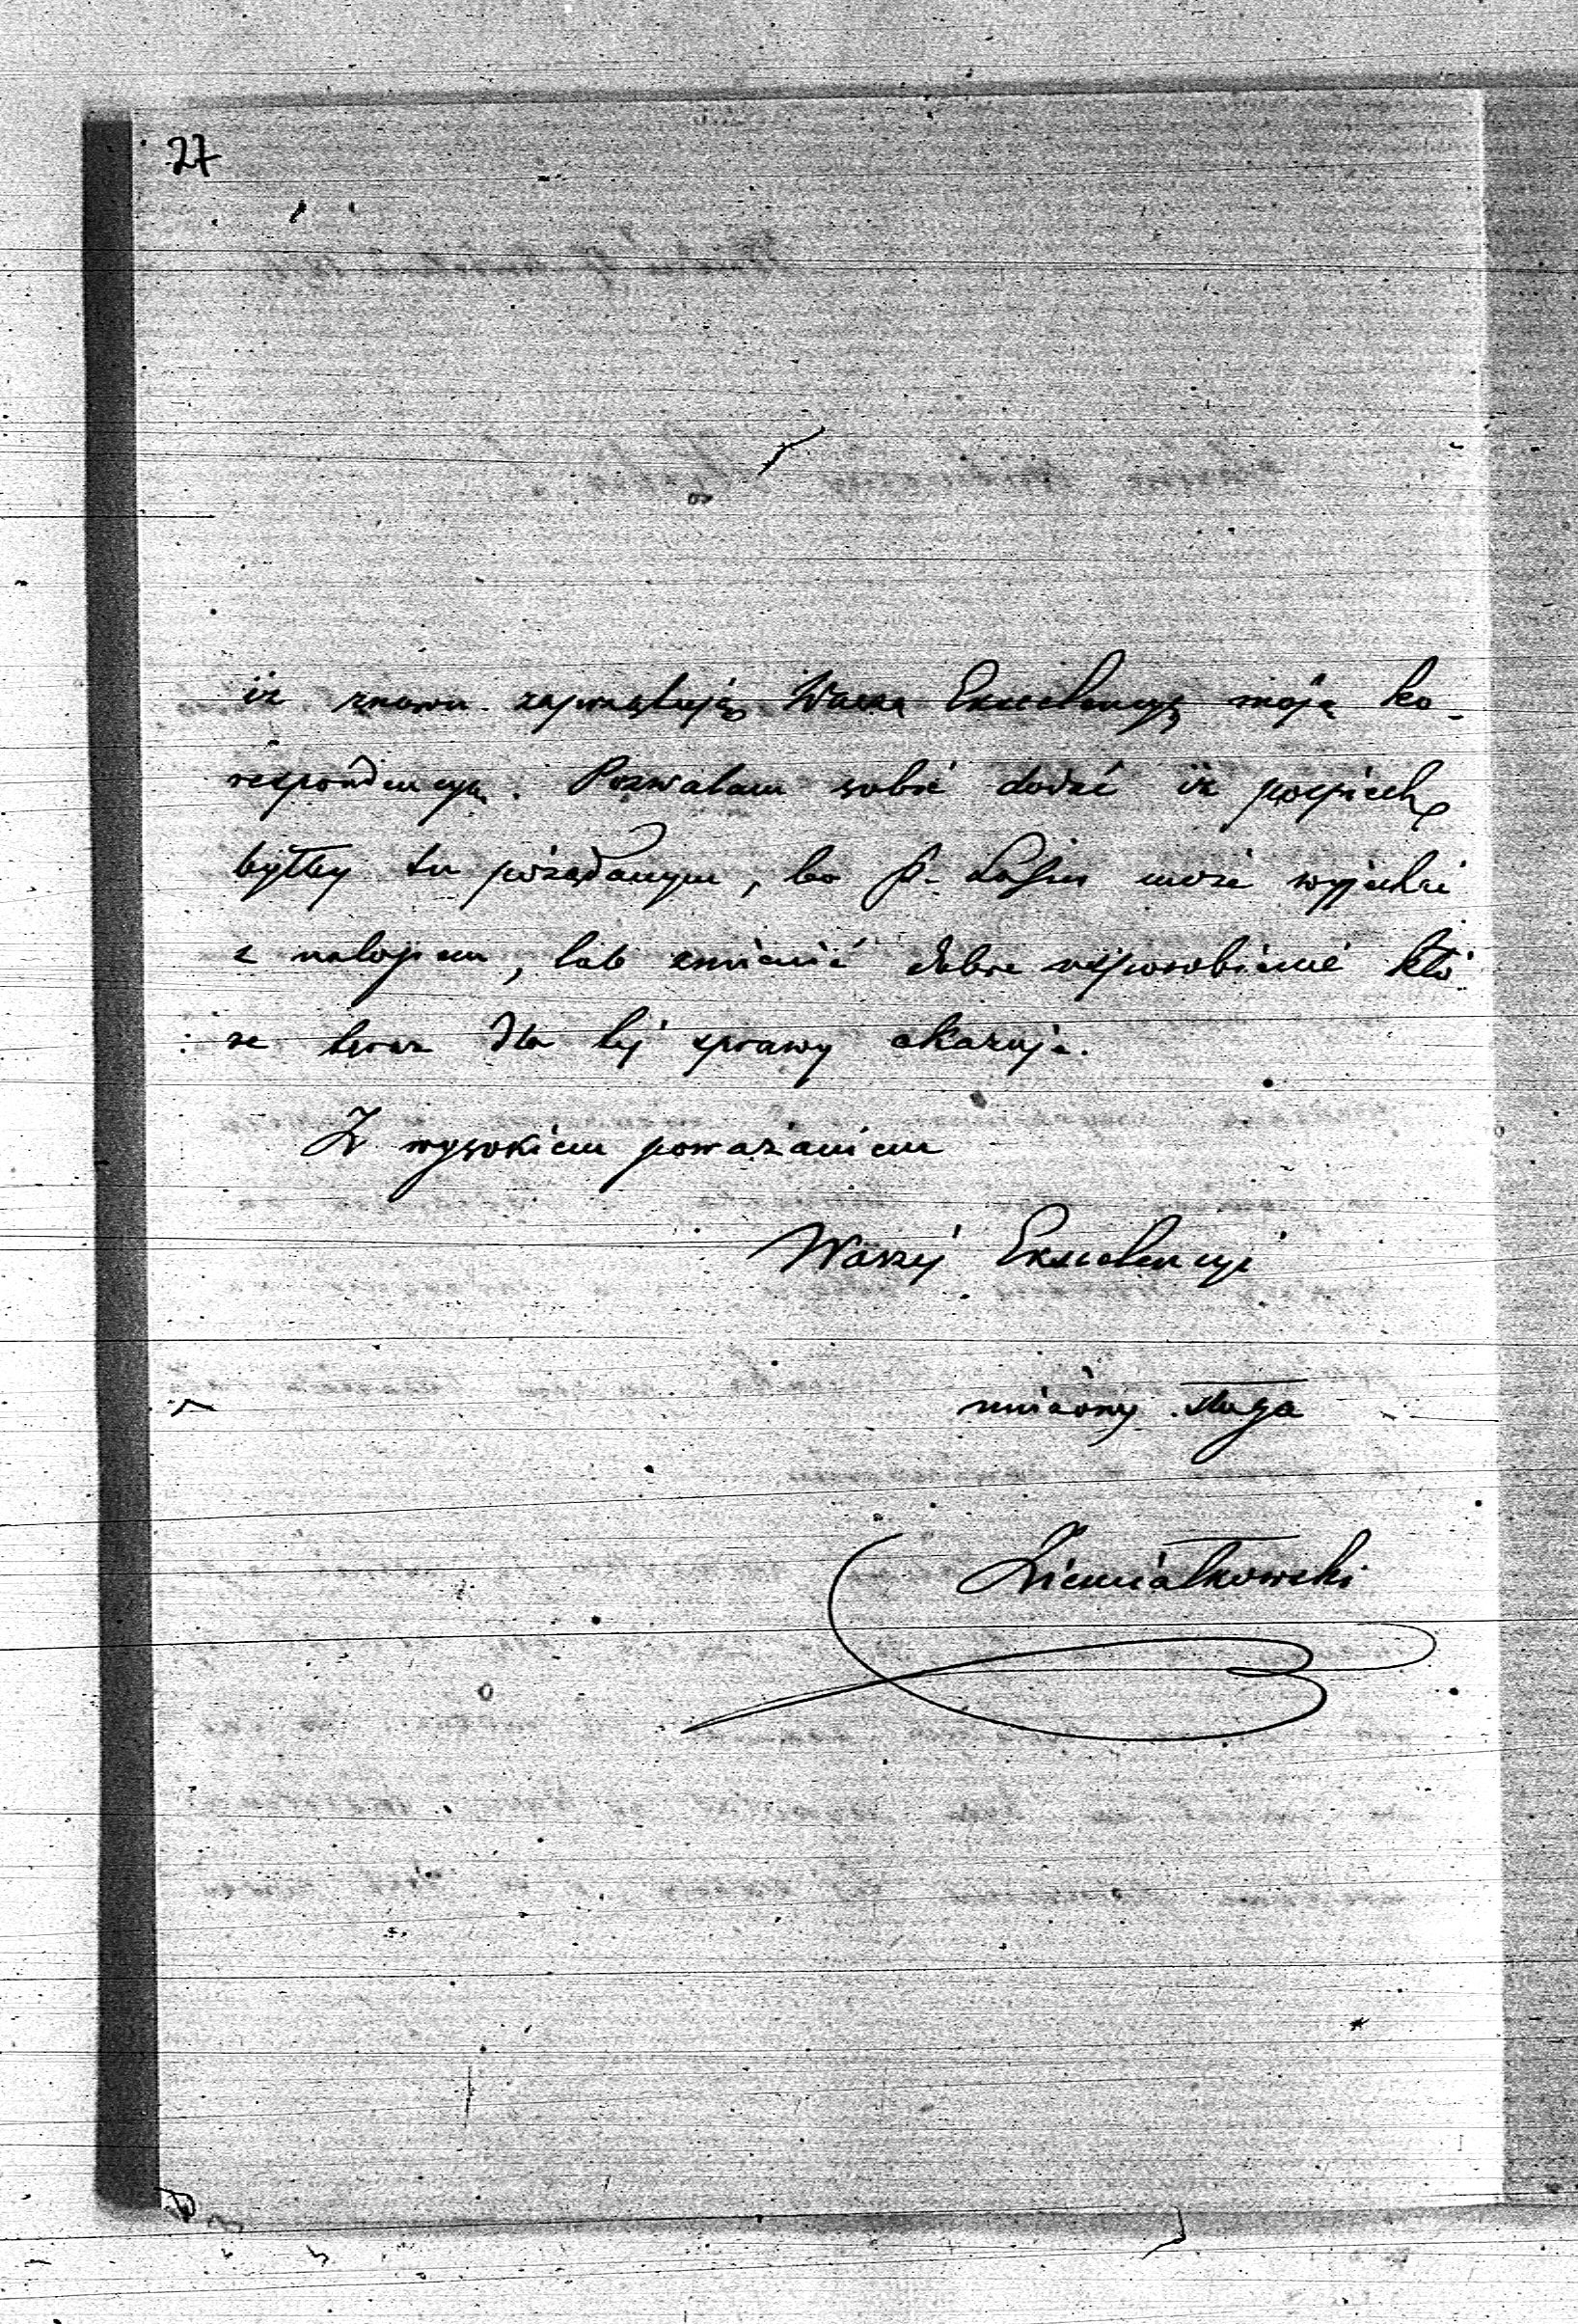 27
iż znowu zaprzątuję Waszą Exscelencyę moją ko-
respondencyą. Pozwalam sobie dodać iż pospiech
byłby tu pożądanym, bo p. może wyjechać
z nałogiem, lub zmienić dobre usposobienie któ
re teraz dla tej sprawy okazuje.
Z wysokiem poważaniem
Waszej Exscelencyi
uniżony sługa
Ziemiałkowski